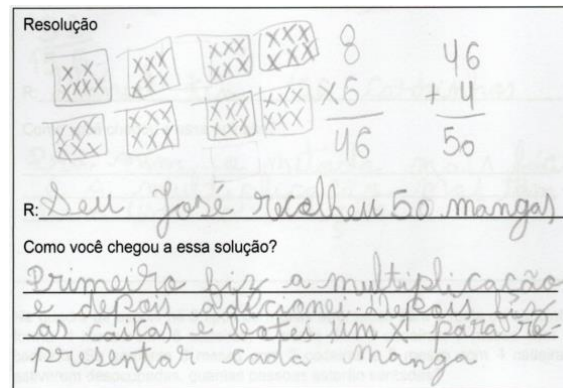 Resolução
8 46
x6 + 4
46 50
R: Seu José recolheu 50 mangas
Como você chegou a essa solução?
Primeiro fiz a multiplicação
e depois adicionei. Depois fiz
as caixas e botei um x para re-
presentar cada manga